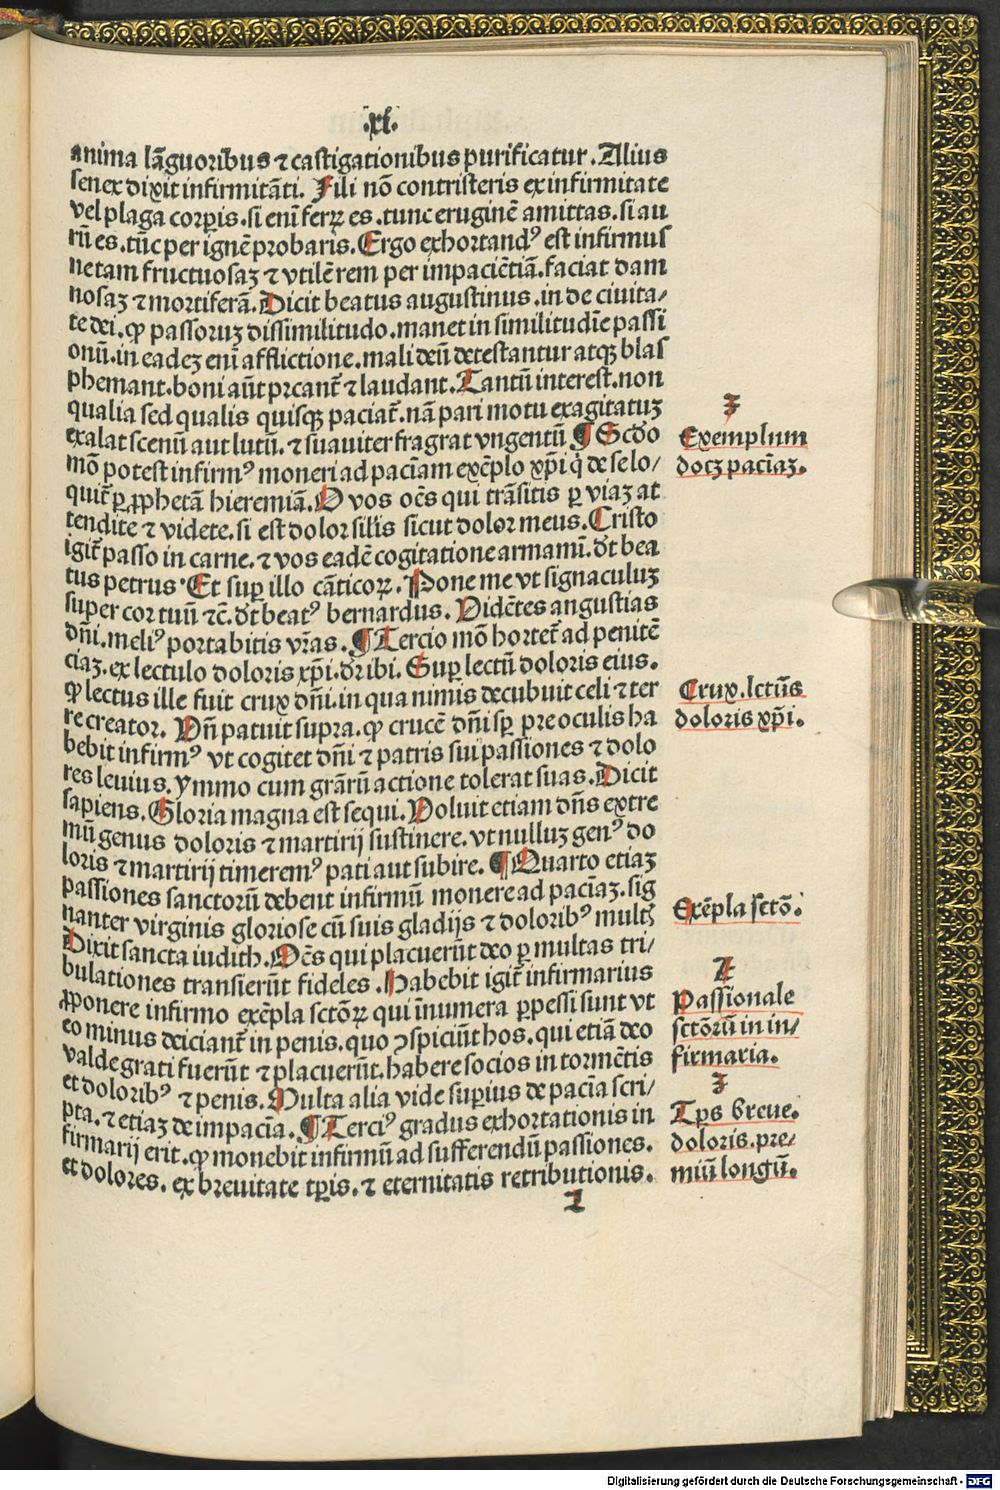 .xl.
anima lãguoribus ⁊ castigationibus purificatur. Alius
senex dixit infirmitãti. Fili nõ contristeris ex infirmitate
vel plaga corꝑis. si enĩ ferꝝ es. tunc eruginẽ amittas. si au
rũ es. tũc per ignẽ probaris. Ergo exhortandꝰ est infirmus
ne tam fructuosaꝫ ⁊ vtilẽ rem per impaciẽtiã. faciat dam
nosaꝫ ⁊ mortiferã. Dicit beatus augustinus. in de ciuita⸗
te dei. ꝙ passoruꝫ dissimilitudo. manet in similitudĩe passi
onũ. in eadeꝫ enĩ afflictione. mali deũ detestantur atqꝫ blas
phemant. boni aũt p̃cant᷑ ⁊ laudant. Tantũ interest. non
qualia sed qualis quisqꝫ paciat᷑. nã pari motu exagitatuꝫ
exalat scenũ aut lutũ. ⁊ suauiter fragrat vngentũ ¶ Scďo
mõ potest infirmꝰ moneri ad paciam exẽplo xp̃i q̇ de se lo⸗
quit᷑ ꝑ ꝓphetã hieremiã. O vos oẽs qui trãsitis ꝑ viaꝫ at
tendite ⁊ videte. si est dolor silis sicut dolor meus. Cristo
igit᷑ passo in carne. ⁊ vos eadẽ cogitatione armamĩ. ďt bea
tus petrus. Et suꝑ illo cãticoꝝ. Pone me vt signaculuꝫ
super cor tuũ ⁊c̃. ďt beatꝰ bernardus. Videntes angustias
dñi. meliꝰ portabitis vr̃as. ¶ Tercio mõ hortet᷑ ad penitẽ
ciaꝫ. ex lectulo doloris xp̃i. ďr ibi. Suꝑ lectũ doloris eius.
ꝙ lectus ille fuit crux dñi. in qua nimis decubuit celi ⁊ ter
re creator. Vñ patuit supra. ꝙ crucẽ dñi sꝑ pre oculis ha
bebit infirmꝰ vt cogitet dñi ⁊ patris sui passiones ⁊ dolo
res leuius. ymmo cum grãrũ actione tolerat suas. Dicit
sapiens. Gloria magna est sequi. Voluit etiam dñs extre
mũ genus doloris ⁊ martirij sustinere. vt nulluꝫ genꝰ do
loris ⁊ martirij timeremꝰ pati aut subire. ¶ Quarto etiaꝫ
passiones sanctorũ debent infirmũ monere ad paciaꝫ. sig
nanter virginis gloriose cũ suis gladijs ⁊ doloribꝰ multꝫ
Dixit sancta iudith. Oẽs qui placuerũt deo ꝑ multas tri⸗
bulationes transierũt fideles. Habebit igit᷑ infirmarius
ꝓponere infirmo exẽpla sctõꝝ qui ĩnumera ꝑpessi sunt vt
eo minus deiciant᷑ in penis. quo ↄspiciũt hos. qui etiã deo
valde grati fuerũt ⁊ placuerũt. habere socios in tormẽtis
et doloribꝰ ⁊ penis. Multa alia vide suꝑius de pacĩa scri⸗
pta. ⁊ etiaꝫ de impacĩa. ¶ Terciꝰ gradus exhortationis in
firmarij erit. ꝙ monebit infirmũ ad sufferendũ passiones.
et dolores. ex breuitate tꝑis. ⁊ eternitatis retributionis.
Exemplum
docꝫ pacĩaꝫ.
Crux. lctũs
doloris xp̃i.
Exẽpla sctõ.
Passionale
sctõrũ in in⸗
firmaria.
Tꝑs breue.
doloris. pre⸗
miũ longũ.
Digitalisierung gefördert durch die Deutsche Forschungsgemeinschaft - DFG